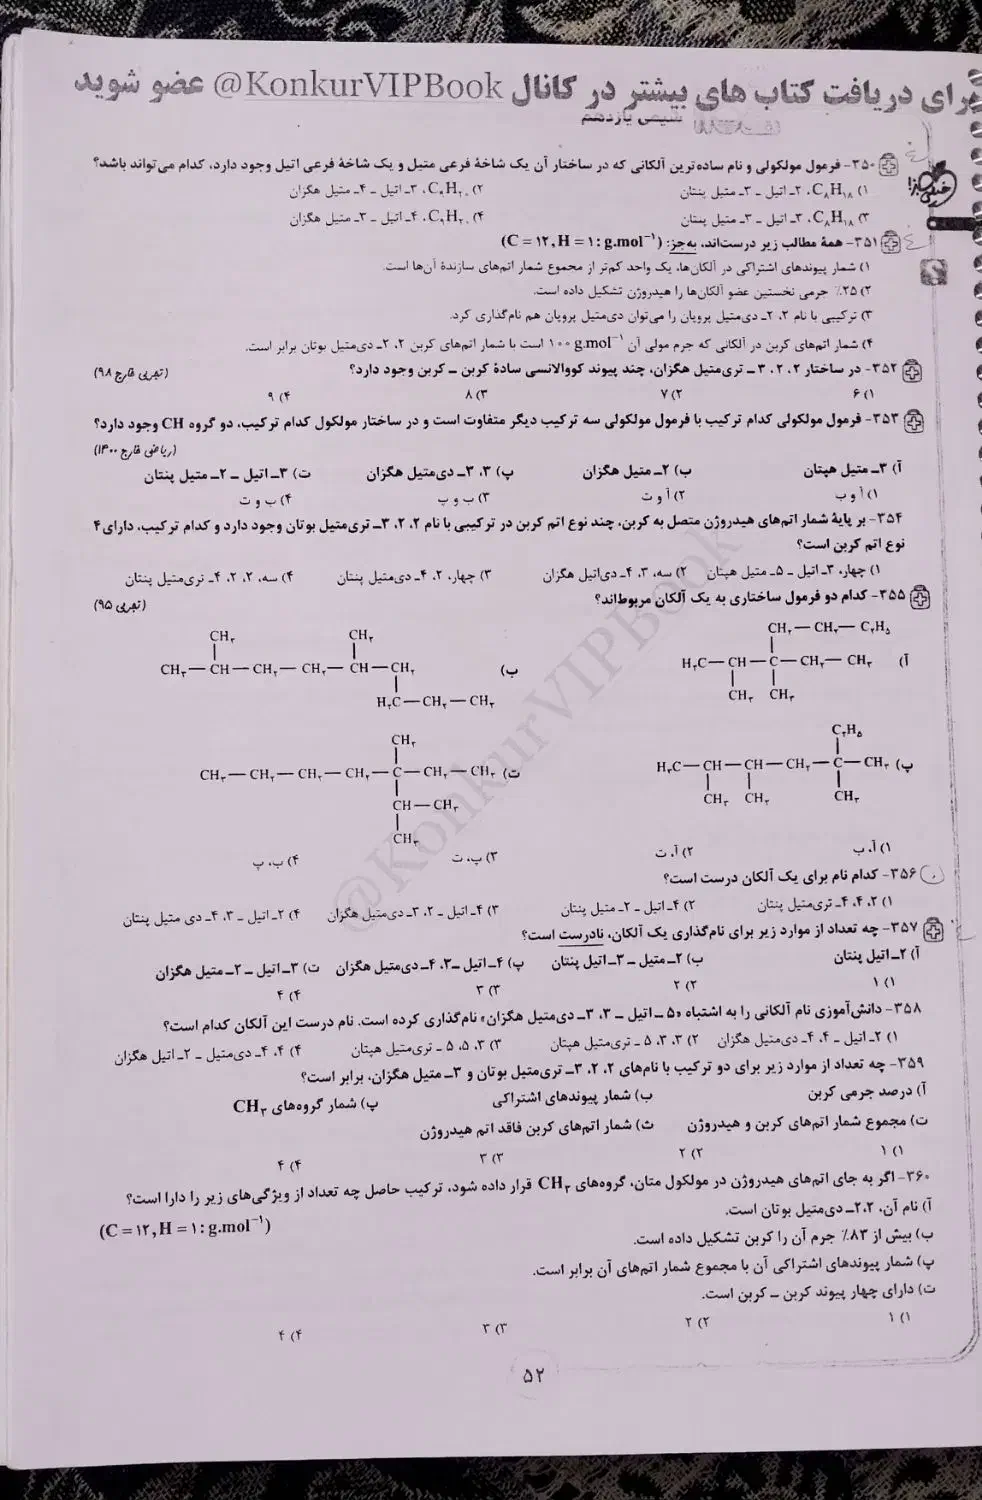 برای دریافت کتاب های بیشتر در کانال KonkurVIPBook@ عضو شوید
شیمی یازدهم
۳۵۰- فرمول مولکولی و نام ساده‌ترین آلکانی که در ساختار آن یک شاخهٔ فرعی متیل و یک شاخهٔ فرعی اتیل وجود دارد، کدام می‌تواند باشد؟
۱) C₈H₁₈، ۲ـ اتیل ـ ۳ـ متیل پنتان
۲) C₉H₂₀، ۳ـ اتیل ـ ۴ـ متیل هگزان
۳) C₈H₁₈، ۳ـ اتیل ـ ۳ـ متیل پنتان
۴) C₉H₂₀، ۴ـ اتیل ـ ۳ـ متیل هگزان
۳۵۱- همهٔ مطالب زیر درست‌اند، به‌جز: (C = ۱۲, H = ۱ : g.mol⁻¹)
۱) شمار پیوندهای اشتراکی در آلکان‌ها، یک واحد کم‌تر از مجموع شمار اتم‌های سازندهٔ آن‌ها است.
۲) ۲۵٪ جرمی نخستین عضو آلکان‌ها را هیدروژن تشکیل داده است.
۳) ترکیبی با نام ۲، ۲ـ دی‌متیل پروپان را می‌توان دی‌متیل پروپان هم نام‌گذاری کرد.
۴) شمار اتم‌های کربن در آلکانی که جرم مولی آن ۱۰۰ g.mol⁻¹ است با شمار اتم‌های کربن ۲، ۲ـ دی‌متیل بوتان برابر است.
۳۵۲- در ساختار ۲، ۲، ۳ ـ تری‌متیل هگزان، چند پیوند کووالانسی سادهٔ کربن ـ کربن وجود دارد؟ (تجربی خارج ۹۸)
۱) ۶ ۲) ۷ ۳) ۸ ۴) ۹
۳۵۳- فرمول مولکولی کدام ترکیب با فرمول مولکولی سه ترکیب دیگر متفاوت است و در ساختار مولکول کدام ترکیب، دو گروه CH وجود دارد؟
(ریاضی خارج ۱۴۰۰)
آ) ۳ـ متیل هپتان ب) ۲ـ متیل هگزان پ) ۳، ۳ـ دی‌متیل هگزان ت) ۳ـ اتیل ـ ۲ـ متیل پنتان
۱) آ و ب ۲) آ و ت ۳) ب و پ ۴) ب و ت
۳۵۴- بر پایهٔ شمار اتم‌های هیدروژن متصل به کربن، چند نوع اتم کربن در ترکیبی با نام ۲، ۲، ۳ـ تری‌متیل بوتان وجود دارد و کدام ترکیب، دارای ۴
نوع اتم کربن است؟
۱) چهار، ۳ـ اتیل ـ ۵ـ متیل هپتان ۲) سه، ۳، ۴ـ دی‌اتیل هگزان ۳) چهار، ۲، ۴ـ دی‌متیل پنتان ۴) سه، ۲، ۲، ۴ـ تری‌متیل پنتان
۳۵۵- کدام دو فرمول ساختاری به یک آلکان مربوط‌اند؟ (تجربی ۹۵)
CH₂ — CH₂ — C₂H₅
آ) H₃C — CH — C — CH₂ — CH₃
CH₃ CH₃
CH₃ CH₃
ب) CH₃ — CH — CH₂ — CH₂ — CH — CH₂
H₂C — CH₂ — CH₃
C₂H₅
پ) H₃C — CH — CH — CH₂ — C — CH₃
CH₃ CH₃ CH₃
CH₃
ت) CH₃ — CH₂ — CH₂ — CH₂ — C — CH₂ — CH₃
CH — CH₃
CH₃
۱) آ، ب ۲) آ، ت ۳) پ، ت ۴) ب، پ
۳۵۶- کدام نام برای یک آلکان درست است؟
۱) ۲، ۴، ۴ـ تری‌متیل پنتان ۲) ۴ـ اتیل ـ ۲ـ متیل پنتان ۳) ۴ـ اتیل ـ ۲، ۳ـ دی‌متیل هگزان ۴) ۲ـ اتیل ـ ۳، ۴ـ دی متیل پنتان
۳۵۷- چه تعداد از موارد زیر برای نام‌گذاری یک آلکان، نادرست است؟
آ) ۲ـ اتیل پنتان ب) ۲ـ متیل ـ ۳ـ اتیل پنتان پ) ۴ـ اتیل ـ۳، ۴ـ دی‌متیل هگزان ت) ۳ـ اتیل ـ ۲ـ متیل هگزان
۱) ۱ ۲) ۲ ۳) ۳ ۴) ۴
۳۵۸- دانش‌آموزی نام آلکانی را به اشتباه «۵ ـ اتیل ـ ۳، ۳ـ دی‌متیل هگزان» نام‌گذاری کرده است. نام درست این آلکان کدام است؟
۱) ۲ـ اتیل ـ ۴، ۴ـ دی‌متیل هگزان ۲) ۳، ۳، ۵ ـ تری‌متیل هپتان ۳) ۳، ۵، ۵ ـ تری‌متیل هپتان ۴) ۴، ۴ـ دی‌متیل ـ ۲ـ اتیل هگزان
۳۵۹- چه تعداد از موارد زیر برای دو ترکیب با نام‌های ۲، ۲، ۳ـ تری‌متیل بوتان و ۳ـ متیل هگزان، برابر است؟
آ) درصد جرمی کربن ب) شمار پیوندهای اشتراکی پ) شمار گروه‌های CH₃
ت) مجموع شمار اتم‌های کربن و هیدروژن ث) شمار اتم‌های کربن فاقد اتم هیدروژن
۱) ۱ ۲) ۲ ۳) ۳ ۴) ۴
۳۶۰- اگر به جای اتم‌های هیدروژن در مولکول متان، گروه‌های CH₃ قرار داده شود، ترکیب حاصل چه تعداد از ویژگی‌های زیر را دارا است؟
(C = ۱۲, H = ۱ : g.mol⁻¹)
آ) نام آن، ۲،۲ـ دی‌متیل بوتان است.
ب) بیش از ۸۳٪ جرم آن را کربن تشکیل داده است.
پ) شمار پیوندهای اشتراکی آن با مجموع شمار اتم‌های آن برابر است.
ت) دارای چهار پیوند کربن ـ کربن است.
۱) ۱ ۲) ۲ ۳) ۳ ۴) ۴
۵۲
@KonkurVIPBook